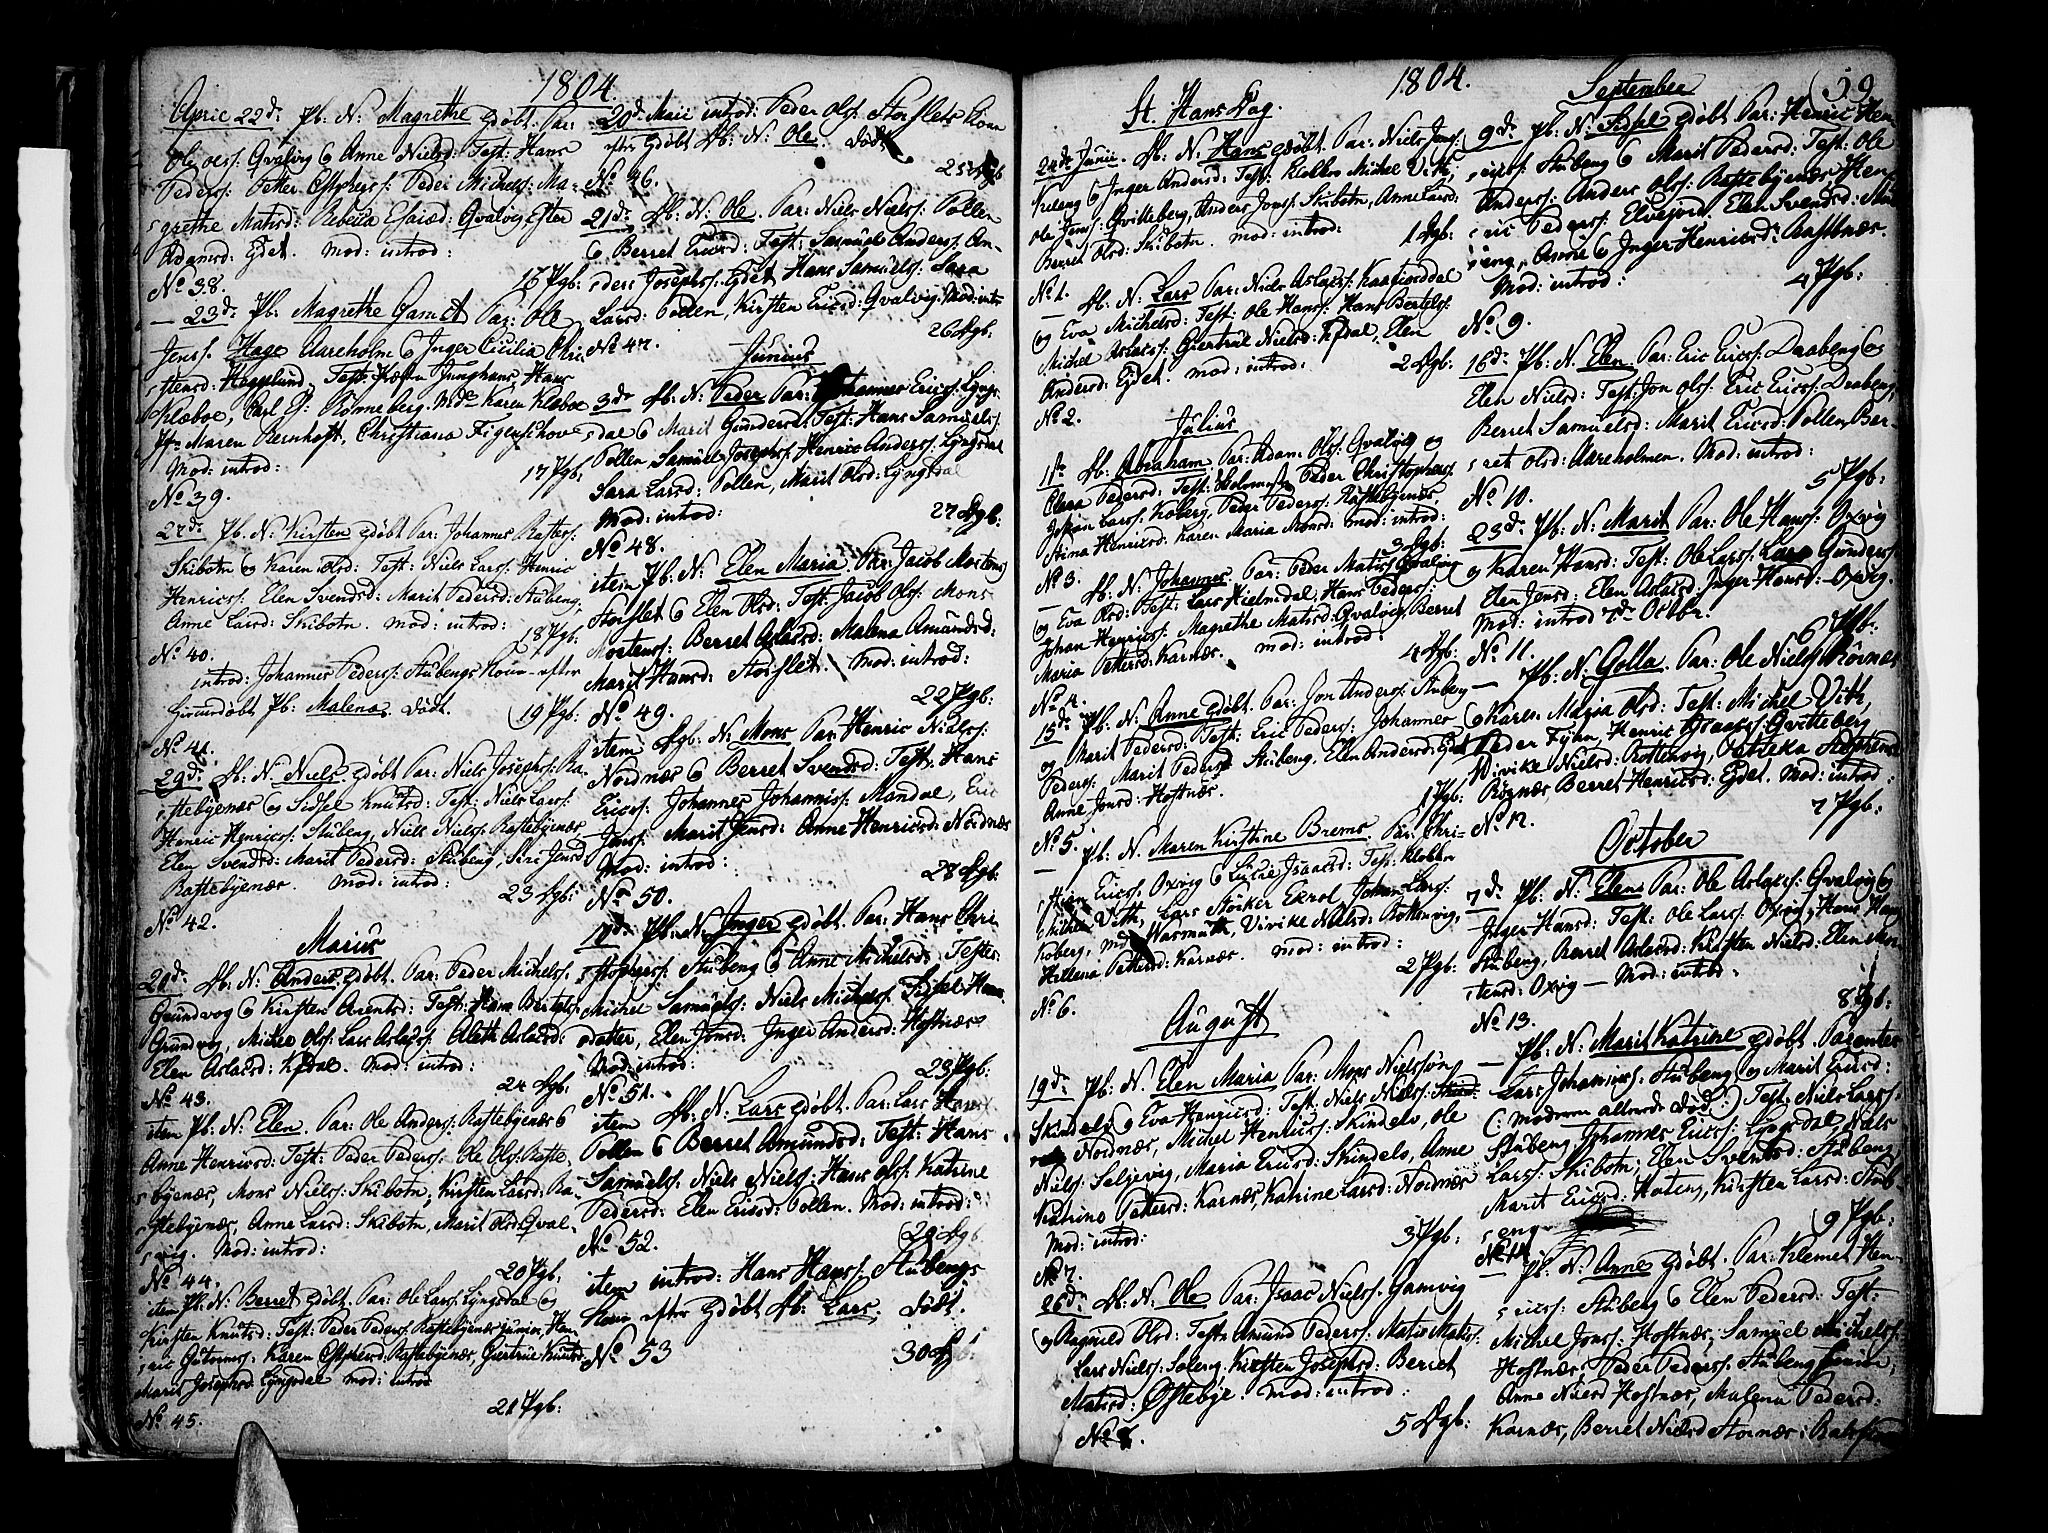 1804.
April 22d: Pb: N: Magrethe hdøbt. Par:
Ole Ols: Qvalvig & Anne Nielsd: Test: Hans
Peders: Petter Peder Michels: Ma-
grethe Matisd: Rebecca Qvalvig, Ester
Adamsd: Ejdet. Mod: introd:
No 38. 16 Pgb:
— 23d: Pb: Magrethe Par: Ole
Jens: Hage Aareholm & Inger Cicilia Chri
stensd: Heggelund, Test: Junghans, Hans
Klæboe, Carl Rønneberg. Karen Klæboe
Maren Bernhoft, Christiana Figenschove
Mod: introd: 17 Pgb:
No 39.
27d: Pb: N: Kirsten hdøbt Par: Johannes
Skibotn og Karen Olsd: Test: Niels Lars: Henric
Henrics: Elen Svendsd: Marit Pedersd: Stubeng,
Anne Larsd: Skibotn. Mod: introd: 18 Pgb:
No 40.
introd: Johannes Peders: Stubengs Kone efter
hdøbt Pb: Malena. død. 19 Pgb:
No 41.
29d: Db: N: Niels hdøbt Par: Niels Josephs: Ra-
stebyenæs og Sidsel Knutsd: Test: Niels Lars:
Henric Henrics: Stubeng, Niels Niels: Rastebyenæs,
Elen Svendsd: Marit Pedersd: Stubeng, Siri Jensd
Rastebyenæs. Mod: introd: 23 Dgb:
No 42.
Maius
20d: Db: N: Anders hdøbt. Par: Peder Michels:
Grundvog & Kirsten Arentsd: Test: Hans Bertels:
Grundvog, Michel Ols: Lars Aslacs: Aleth Aslacsd:
Elen Aslacsd: Kfdal. Mod: introd:
24 Dgb.
No 43.
item Pb: N: Elen. Par: Ole Anders: Rastebyenæs &
Anne Henricsd: Test: Peder Peders: Ole Ols: Raste-
byenæs, Mons Niels: Skibotn, Kirsten Larsd: Ra-
stebyenæs, Anne Larsd: Skibotn, Marit Olsd: Qval-
vig. Mod: introd:
20 Pgb:
No 44.
item Pb: N: Berret hdøbt. Par: Ole Lars: Lyngsdal og
Kirsten Knutsd: Test: Peder Peders: Rastebyenæs junior, Hen-
ric Guttorms: Karen Rastebyenæs, Giertrue Knutsd
Marit Josephsd: Lyngsdal mod: introd
21 Pgb:
No 45.
20d Maii introd: Peder Ols: Storslets Kone
efter hdøbt Db: N: Ole. død.
25 Dgb
No 46.
21d: Db: N: Ole. Par: Niels Niels: Pollen
& Berret Ericsd: Test: Samuel Anders: An-
ders Josephs: Ejdet Hans Samuels: Sara
Larsd: Pollen, Kirsten Ericsd: Qvalvig. Mod: intr
26 Dgb.
No 47.
Junius
3d: Db: N: Peder Par: Johannes Erics: Lyngs-
dal & Marit Gundersd: Test: Hans Samuels:
Pollen Samuel Josephs: Henric Anders: Lyngsdal
Sara Larsd: Pollen, Marit Olsd: Lyngsdal
Mod: introd: 27 Dgb:
No 48.
item Pb: N: Elen Maria. Par: Jacob Mortens
Storslet & Elen Olsd: Test: Jacob Ols: Mons
Mortens: Berret Aslacsd: Malena Amundsd:
Marit Hansd: Storslet. Mod: introd:
22 Pgb:
No 49.
item Dgb: N: Mons Par: Henric Niels:
Nordnæs & Berret Svendsd: Test: Hans
Erics: Johannes Johannis: Mandal, Eric
Jons: Marit Jensd: Anne Henricsd: Nordnæs
Mod: introd: 28 Dgb:
No 50.
Pb: N: Inger hdøbt. Par: Hans Chri
stophers: Stubeng & Anne Nielsd: Testes
Michel Samuels: Niels Michels: Sidsel Hans
datter, Elen Jonsd: Inger Andersd: Hofnæs
Mod: introd: 23 Pgb:
No 51.
item Db: N: Lars hdøbt. Par: Lars Hans:
Pollen & Berret Amundsd: Test: Hans
Samuels: Niels Niels: Hans Ols: Katrine
Pedersd: Elen Ericsd: Pollen. Mod: introd:
29 Dgb.
No 52.
item introd: Hans Hans: Stubengs
Kone efter hdøbt Db: Lars. død.
No 53 30 Dgb:
1804.
59
St. Hans Dag.
24de Junii. Db: N: Hans hdøbt. Par: Niels Jens:
Kileng & Inger Andersd: Test: Klokker Michel Vith,
Ole Jens: Qvitteberg, Anders Jons: Skibotn, Anne Larsd:
Berret Olsd: Skibotn. mod: introd: 1 Dgb:
No 1. Db: N: Lars Par: Niels Aslacs: Kaafjorddal
og Eva Michelsd: Test: Ole Hans: Hans Bertels:
Michel Aslacs: Giertrue Nielsd: Kfdal, Elen
Andersd: Ejdet. mod: introd: 2 Dgb:
No 2.
Julius
1ste Db: Abraham. Par: Adam Ols: Qvalvig og
Clara Pedersd: Test: Peder Christophers:
Johan Lars: Koberg, Peder Peders: Rastebyenæs,
Stina Henricsd: Karen Maria Monsd: mod: introd:
3 Dgb:
No 3. Db: N: Johannes Par: Peder Matis: Qvalvig
og Eva Olsd: Test: Lars Hielmdal, Hans Peders:
Johan Henrics: Magrethe Matisd: Qvalvig, Berret
Maria Pettersd: Karnæs. mod: introd: 4 Dgb:
No 4.
15d: Pb: N: Anne hdøbt. Par: Jon Anders: Stubeng
og Marit Pedersd: Test: Eric Peders: Johannes
Peders: Marit Pedersd Stubeng, Elen Andersd: Ejdet
Anne Jonsd: Hofnæs. 1 Pgb:
No 5.
— Pb: N. Maren Kirstine Brems. Par: Chri-
stian Erics: Oxvig & Lucie Isaacsd: Test: Klokker
Michel Vith, Lars Stöcker Ekrol, Johan Lars:
Koberg, Md Warmuth, Vivike Nielsd: Rottenvig,
Hellena Pettersd: Karnæs. mod: introd:
2 Pgb:
No 6.
August
19d: Pb: N. Elen Maria Par: Mons Nielssøn
Skindelv & Eva Henricsd: Test: Niels Niels:
Nordnæs, Michel Henrics: Skindelv, Ole
Niels: Seljevig, Maria Ericsd: Skindelv, Anne
Katrina Pettersd: Karnæs, Katrine Larsd: Nordnæs
Mod: introd: 3 Pgb:
No 7.
26d: Db: N: Ole Par: Isaac Niels: Gamvig
og Ragnild Olsd: Test: Amund Peders: Matis Matis:
Lars Niels: Soleng. Kirsten Josephsd: Berret
Matisd: Østebye. mod: introd:
No 8. 5 Dgb:
September
9d: Pb: N. Sidsel hdøbt Par: Henric Hen-
rics: Stubeng & Marit Pedersd: Test: Ole
Anders: Anders Ols: Rastebyenæs Hen-
ric Peders: Elvejord. Elen Svendsd:
eng, Anne & Inger Henricsd: Rastbnæs.
Mod: introd: 4 Pgb:
No 9.
16d: Pb: N. Elen Par: Eric Erics: Draabeng og
Elen Nielsd: Test: Jon Ols: Eric Erics: Draabeng,
Berret Samuelsd: Marit Ericsd: Pollen Ber-
ret Olsd: Aareholmen. Mod: introd:
5 Pgb:
No 10.
23d: Pb: N: Marit Par: Ole Hans: Oxvig
og Karen Hansd: Test: Ole Lars: Lars Gunders:
Elen Jensd: Elen Aslacsd: Inger Hansd: Oxvig.
Mod: introd 7de Octbr.
6 Pgb:
No 11.
— Pb: N: Golla. Par: Ole Niels: Rörnæs
& Karen Maria Olsd: Test: Michel Vith,
Peder Fyhn, Henric Isaacs: Qvitteberg
Vivike Nielsd: Rottenvig,
Rögnæs, Berret Henricsd: Ejdet. Mod: introd:
7 Pgb:
No 12.
October
7d: Pb: N: Elen Par: Ole Aslacs: Qvalvig &
Inger Hansd: Test: Ole Lars: Oxvig, Hans Hans
Stubeng, Berret Aslacsd: Kirsten Nielsd: Elen Mor-
tensd: Oxvig — Mod: introd:
8 Pgb:
No 13.
— Pb: N: Marit Katrine hdøbt. Parenter
Lars Johannis: Stubeng og Marit Ericsd:
(: Moderen allerede død :) Test: Niels Lars:
Stubeng Johannes Erics: Lyngsdal, Niels
Lars: Skibotn, Elen Svendsd: Stubeng
Marit Ericsd: Hoten, Kirsten Larsd: Stub
eng. 9 Pgb:
No 14
— Pb: N: Anne hdøbt. Par: Klemet Hen-
rics: Stubeng & Elen Pedersd: Test:
Michel Jons: Hofnæs, Samuel Michels:
Hofnæs, Peder Peders: Stubeng junior,
Anne Nielsd Hofnæs, Malena Pedersd:
Karnæs, Berret Nielsd Stornæs: